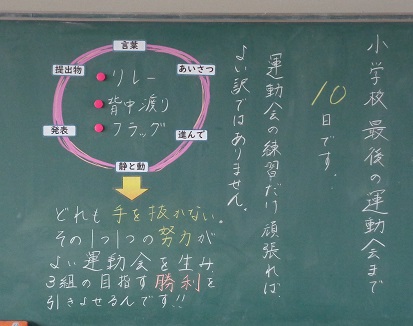 小学校最後の運動会まで
10
日です。
運動会の練習だけ頑張れば
よい訳ではありません。
言葉
あいさつ
進んで
静と動
発表
提出物
リレー
背中渡り
フラッグ
どれも手を抜かない。
その1つ1つの努力が
よい運動会を生み
3組の目指す勝利を
引きよせるんです!!